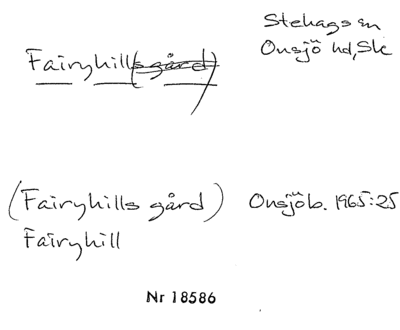 Stehags sn
Onsjö hd, Sk
Fairyhill(s gård)
(Fairyhills gård) Onsjöb. 1965:25
Fairyhill
Nr 18586